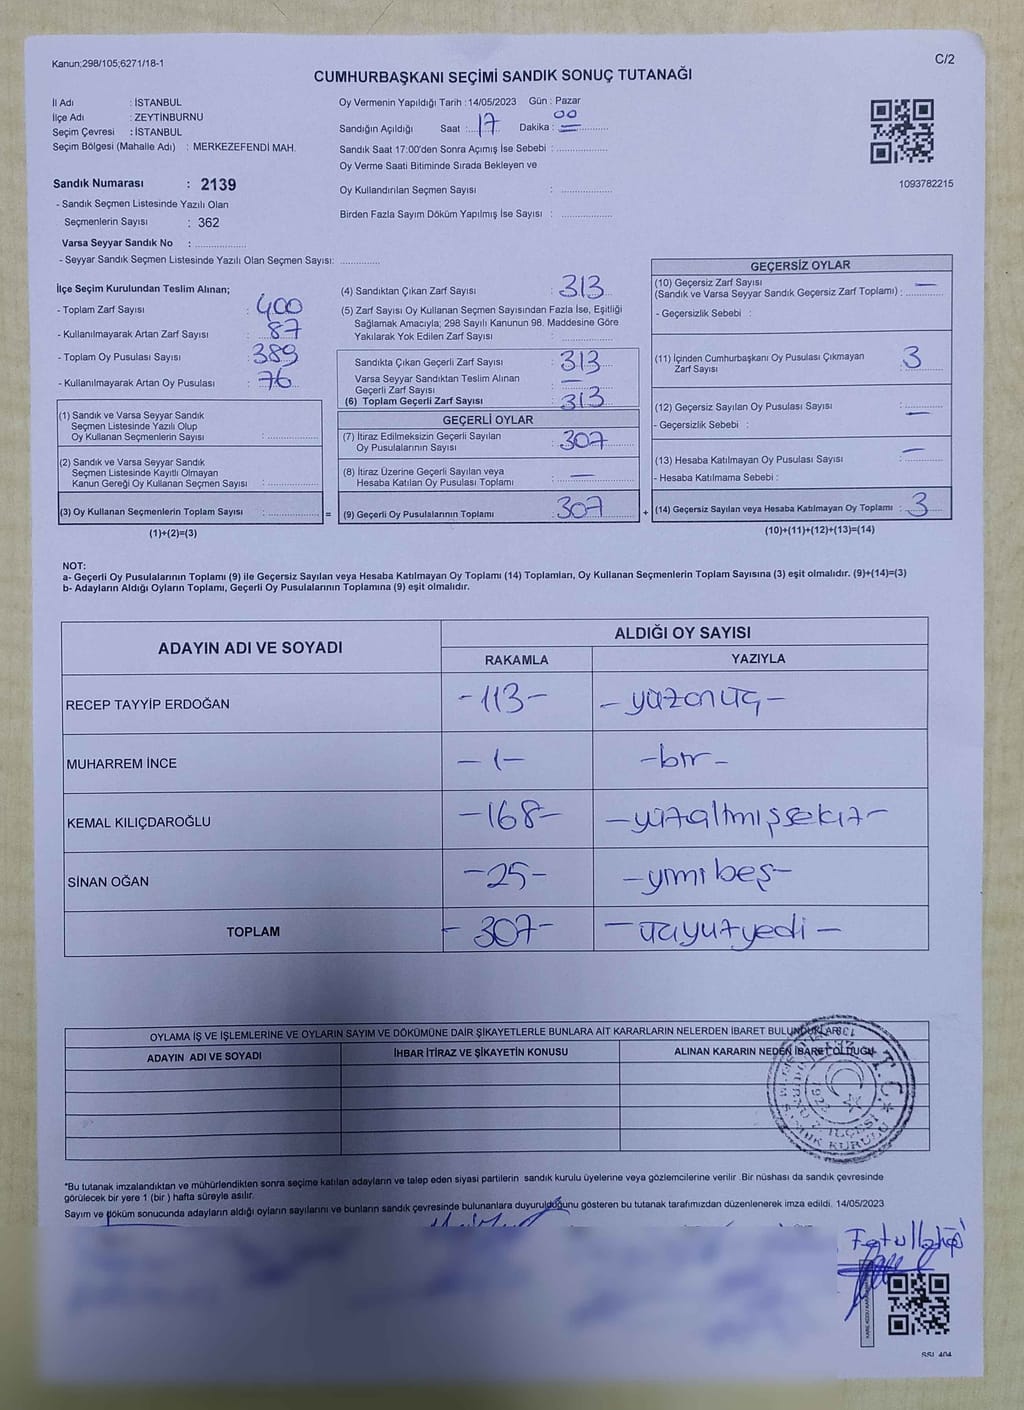 Kanun;298/105;6271/18-1
C/2
CUMHURBAŞKANI SEÇİMİ SANDIK SONUÇ TUTANAĞI
İl Adı : İSTANBUL
İlçe Adı : ZEYTİNBURNU
Seçim Çevresi : İSTANBUL
Seçim Bölgesi (Mahalle Adı) : MERKEZEFENDİ MAH.
Sandık Numarası : 2139
- Sandık Seçmen Listesinde Yazılı Olan
Seçmenlerin Sayısı : 362
Varsa Seyyar Sandık No : ................
- Seyyar Sandık Seçmen Listesinde Yazılı Olan Seçmen Sayısı: ............
Oy Vermenin Yapıldığı Tarih : 14/05/2023 Gün : Pazar
Sandığın Açıldığı Saat : 17 Dakika : 00
Sandık Saat 17:00'den Sonra Açımış İse Sebebi : ................
Oy Verme Saati Bitiminde Sırada Bekleyen ve
Oy Kullandırılan Seçmen Sayısı : ................
Birden Fazla Sayım Döküm Yapılmış İse Sayısı : ................
1093782215
İlçe Seçim Kurulundan Teslim Alınan;
- Toplam Zarf Sayısı : 400
- Kullanılmayarak Artan Zarf Sayısı : 87
- Toplam Oy Pusulası Sayısı : 389
- Kullanılmayarak Artan Oy Pusulası : 76
(1) Sandık ve Varsa Seyyar Sandık
Seçmen Listesinde Yazılı Olup
Oy Kullanan Seçmenlerin Sayısı : ................
(2) Sandık ve Varsa Seyyar Sandık
Seçmen Listesinde Kayıtlı Olmayan
Kanun Gereği Oy Kullanan Seçmen Sayısı : ................
(3) Oy Kullanan Seçmenlerin Toplam Sayısı : ................ =
(1)+(2)=(3)
(4) Sandıktan Çıkan Zarf Sayısı : 313
(5) Zarf Sayısı Oy Kullanan Seçmen Sayısından Fazla İse, Eşitliği
Sağlamak Amacıyla; 298 Sayılı Kanunun 98. Maddesine Göre
Yakılarak Yok Edilen Zarf Sayısı : ................
Sandıkta Çıkan Geçerli Zarf Sayısı : 313
Varsa Seyyar Sandıktan Teslim Alınan
Geçerli Zarf Sayısı : —
(6) Toplam Geçerli Zarf Sayısı : 313
GEÇERLİ OYLAR
(7) İtiraz Edilmeksizin Geçerli Sayılan
Oy Pusulalarının Sayısı : 307
(8) İtiraz Üzerine Geçerli Sayılan veya
Hesaba Katılan Oy Pusulası Toplamı : —
(9) Geçerli Oy Pusulalarının Toplamı : 307 +
GEÇERSİZ OYLAR
(10) Geçersiz Zarf Sayısı
(Sandık ve Varsa Seyyar Sandık Geçersiz Zarf Toplamı) : —
- Geçersizlik Sebebi :
(11) İçinden Cumhurbaşkanı Oy Pusulası Çıkmayan
Zarf Sayısı : 3
(12) Geçersiz Sayılan Oy Pusulası Sayısı : —
- Geçersizlik Sebebi :
(13) Hesaba Katılmayan Oy Pusulası Sayısı : —
- Hesaba Katılmama Sebebi :
(14) Geçersiz Sayılan veya Hesaba Katılmayan Oy Toplamı : 3
(10)+(11)+(12)+(13)=(14)
NOT:
a- Geçerli Oy Pusulalarının Toplamı (9) ile Geçersiz Sayılan veya Hesaba Katılmayan Oy Toplamı (14) Toplamları, Oy Kullanan Seçmenlerin Toplam Sayısına (3) eşit olmalıdır. (9)+(14)=(3)
b- Adayların Aldığı Oyların Toplamı, Geçerli Oy Pusulalarının Toplamına (9) eşit olmalıdır.
ADAYIN ADI VE SOYADI
ALDIĞI OY SAYISI
RAKAMLA YAZIYLA
RECEP TAYYİP ERDOĞAN -113- -yüzonüç-
MUHARREM İNCE -1- -bir-
KEMAL KILIÇDAROĞLU -168- -yüzaltmışsekiz-
SİNAN OĞAN -25- -yimibeş-
TOPLAM -307- -üçyüzyedi-
OYLAMA İŞ VE İŞLEMLERİNE VE OYLARIN SAYIM VE DÖKÜMÜNE DAİR ŞİKAYETLERLE BUNLARA AİT KARARLARIN NELERDEN İBARET BULUNDUKLARI
ADAYIN ADI VE SOYADI İHBAR İTİRAZ VE ŞİKAYETİN KONUSU ALINAN KARARIN NEDEN İBARET OLDUĞU
T.C.
1922
*Bu tutanak imzalandıktan ve mühürlendikten sonra seçime katılan adayların ve talep eden siyasi partilerin sandık kurulu üyelerine veya gözlemcilerine verilir .Bir nüshası da sandık çevresinde
görülecek bir yere 1 (bir ) hafta süreyle asılır.
Sayım ve döküm sonucunda adayların aldığı oyların sayılarını ve bunların sandık çevresinde bulunanlara duyurulduğunu gösteren bu tutanak tarafımızdan düzenlenerek imza edildi. 14/05/2023